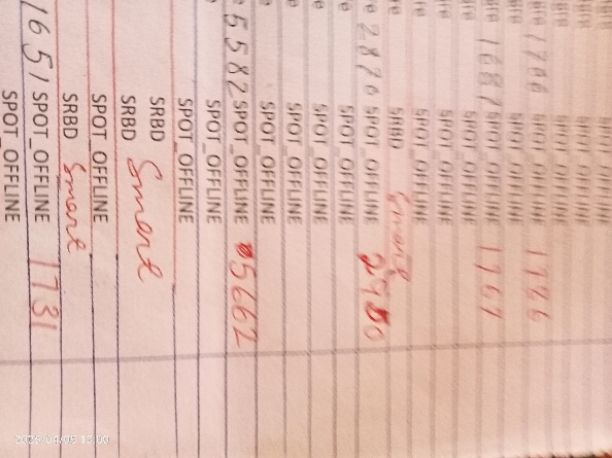 SPOT_OFFLINE
SPOT_OFFLINE
SPOT_OFFLINE 1786
SPOT_OFFLINE
1687 SPOT_OFFLINE 1767
SPOT_OFFLINE
SPOT_OFFLINE
SPOT_OFFLINE
SRBD Smart
2820 SPOT_OFFLINE 2900
SPOT_OFFLINE
SPOT_OFFLINE
SPOT_OFFLINE
SPOT_OFFLINE
5582 SPOT_OFFLINE 5662
SPOT_OFFLINE
SPOT_OFFLINE
SRBD
SRBD Smart
SPOT_OFFLINE
SRBD Smart
1651 SPOT_OFFLINE 1731
SPOT_OFFLINE